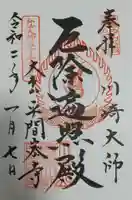 奉拝
川崎大師
厄除遍照殿
大本山平間寺
令和二年一月七日